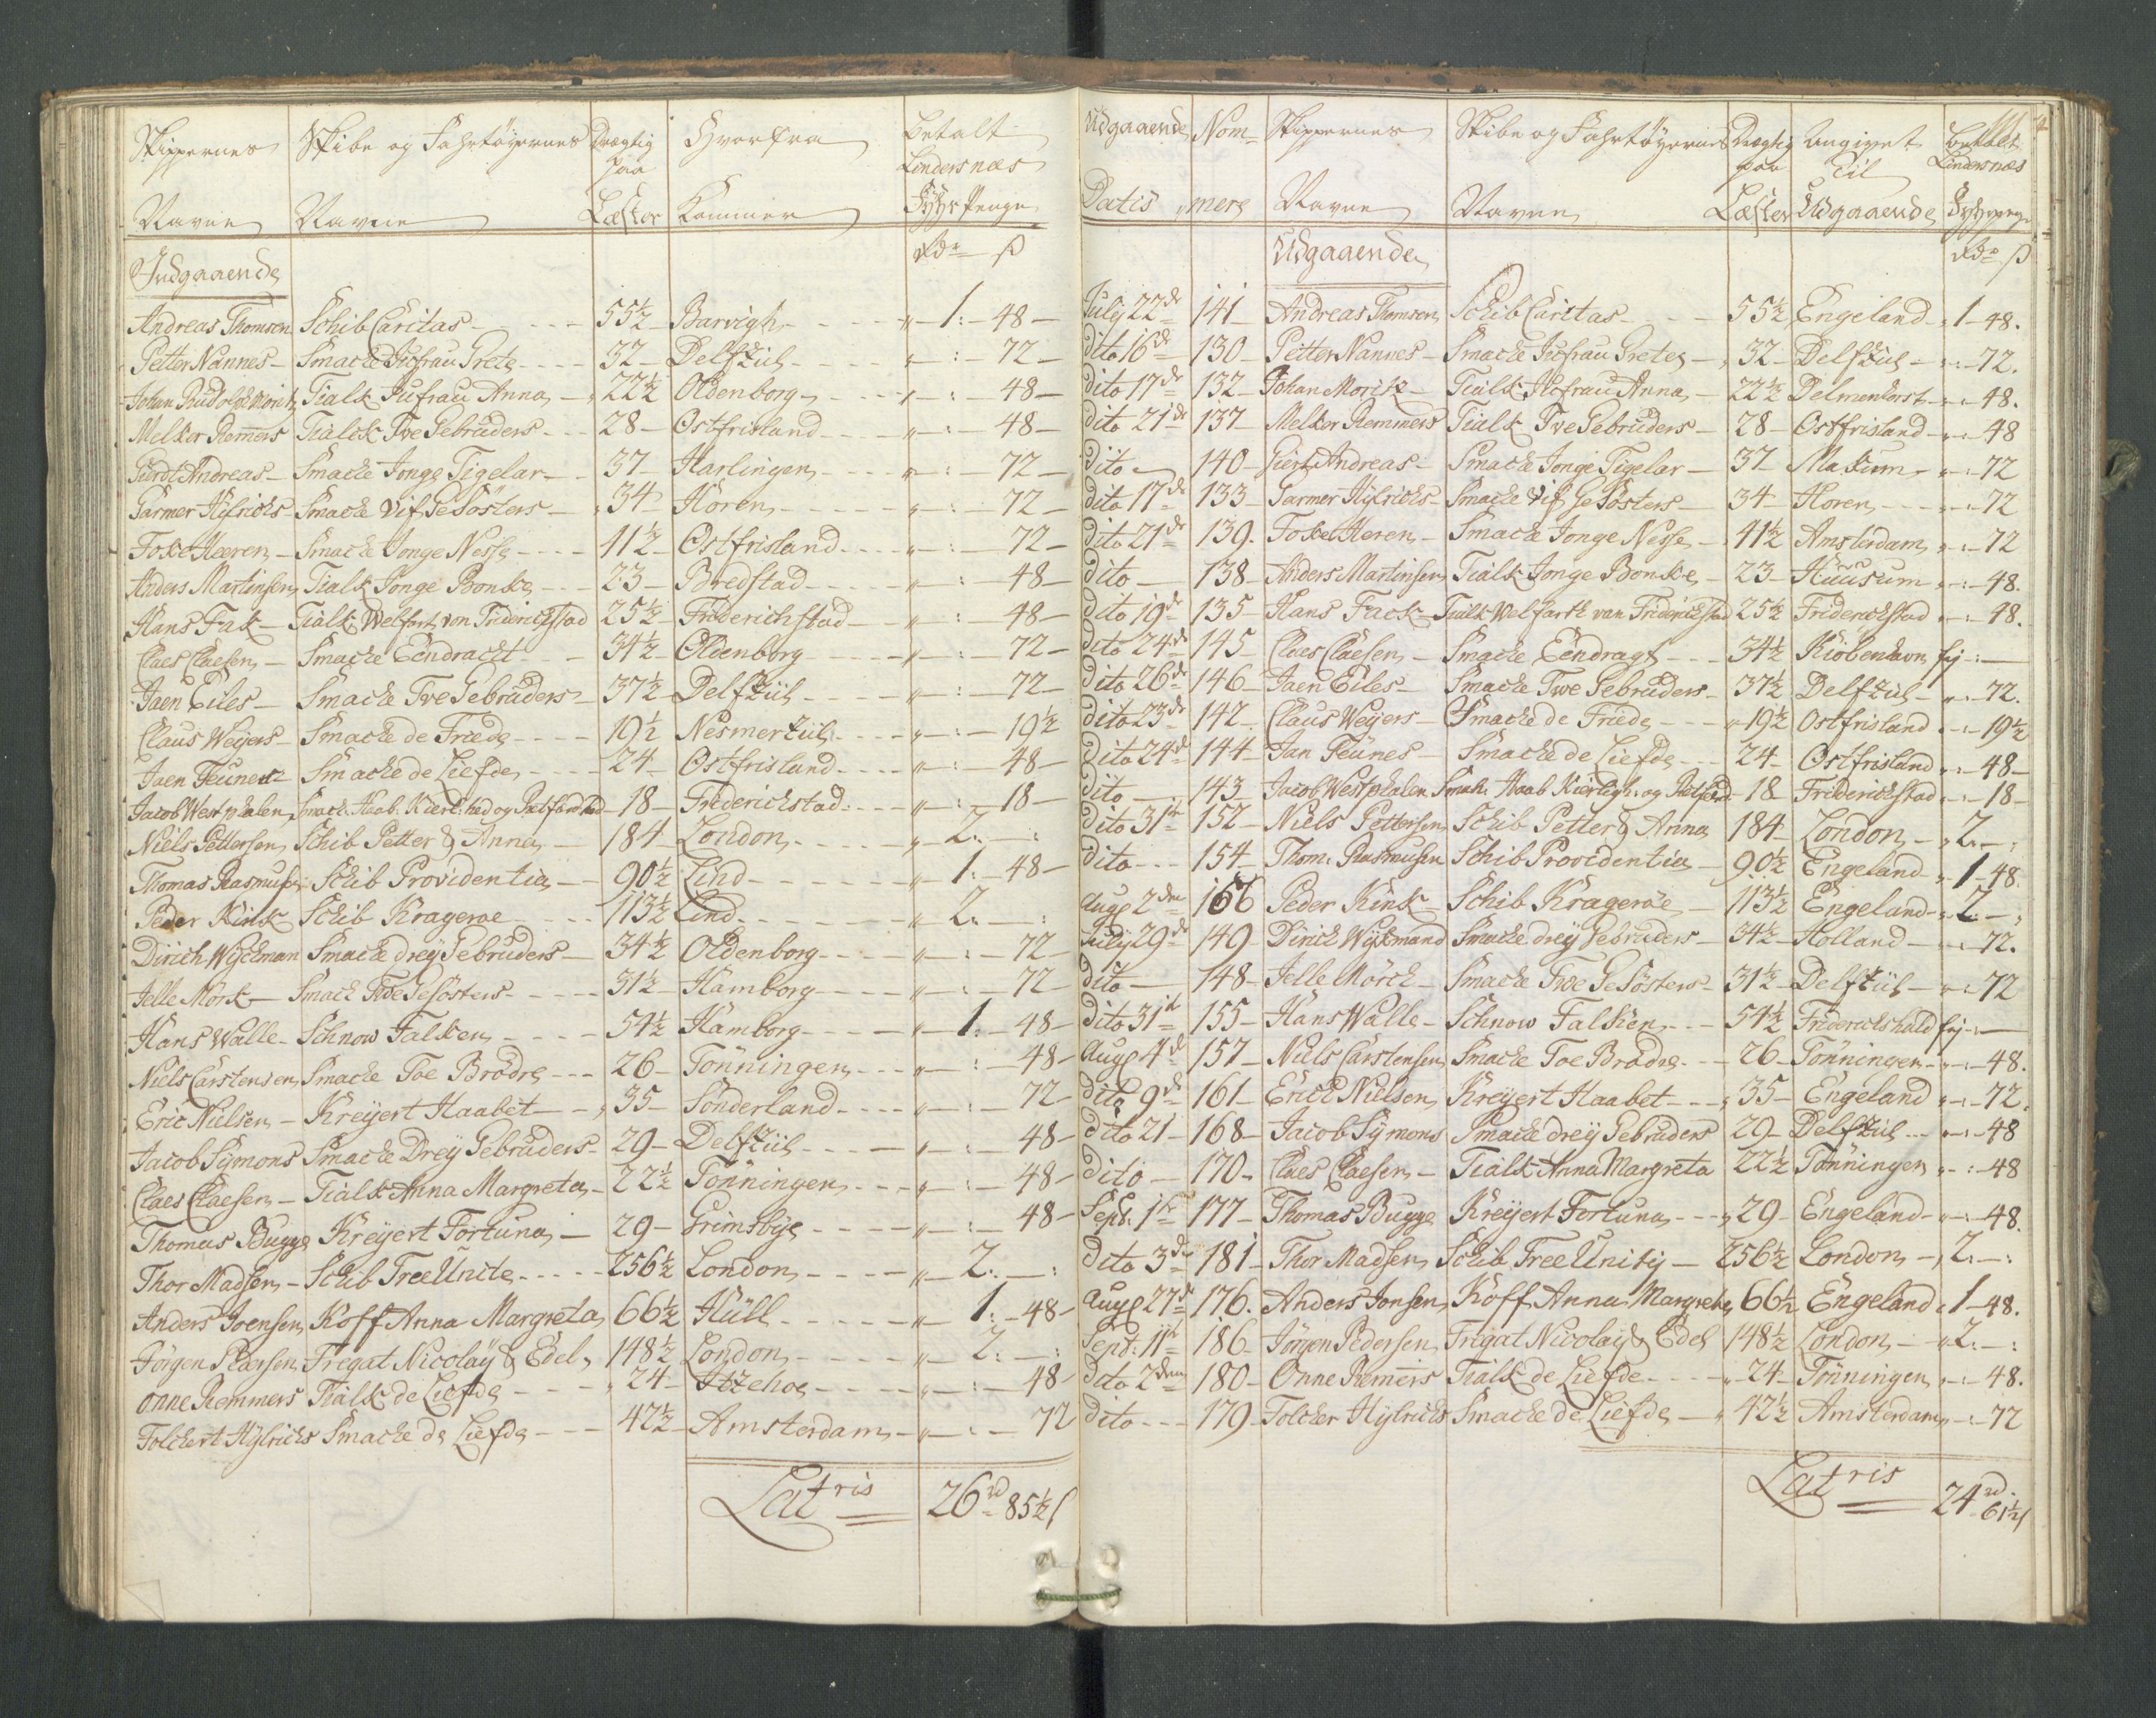 Skippernes Skibe og Fahrtøyernes Drægtig Hvorfra Betalt
paa Lindersnæs
Navne Navne Læster Kommer Fyhr Penge
Rdr ß
Indgaaende
Andreas Thomsen Schib Caritas 55½ Barvigh 1: 48
Petter Nannes Smacke Jufrau Grete 32 Delfziil 72
Johan Rudolph Moritz Tialk Jufrau Anna 22½ Oldenborg 48
Melkor Remmers Tialck Twe Gebrüders 28 Ostfrisland 48
Geirdt Andreas Smacke Jonge Tigelar 37 Harlingen 72
Garmer Hijlrichs Smacke Vif Gesösters 34 Horen 72
Foke Heeren Smacke Jonge Nesse 41½ Ostfrisland 72
Anders Martinsen Tialk Jonge Bonke 23 Bredstad 48
Hans Fak Tialk Welfart von Friderichstad 25½ Friderichstad 48
Claes Claesen Smacke Eendracht 34½ Oldenborg 72
Jaen Eiles Smacke Twe Gebrüders 37½ Delfziil 72
Claus Weyers Smacke de Friede 19½ Nesmerziil 19½
Jaen Teunes Smacke de Liefde 24 Ostfrisland 48
Jacob Westphalen Smack. Haab. Kierl:hed og Ratfærdhed 18 Friderichstad 18
Niels Pettersen Schib Petter & Anna 184 London 2:
Thomas Rasmusen Schib Providentia 90½ Lind 1: 48
Peder Kink Schib Krageroe 113½ Lind 2:
Dirich Wijckman Smacke drey Gebrüders 34½ Oldenborg 72
Jelle Mörk Smack Twe Gesösters 31½ Hamborg 72
Hans Walle Schnow Falken 54½ Hamborg 1: 48
Niels Carstensen Smacke Toe Brødre 26 Tönningen 48
Eric Nielsen Kreyert Haabet 35 Sönderland 72
Jacob Symons Smacke Drey Gebrüders 29 Delfziil 48
Claes Claesen Tialk Anna Margreta 22½ Tönningen 48
Thomas Bugge Kreyert Fortuna 29 Grimsbye 48
Thor Madsen Schib Free Unite 256½ London 2:
Anders Joensen Koff Anna Margreta 66½ Hüll 1: 48
Jörgen Pedersen Fregat Nicolay & Edel 148½ London 2:
Onne Remmers Tialk de Liefde 24 Itzehoe 48
Folckert Hijlrichs Smacke de Liefde 42½ Amsterdam 72
Latris 26rd 85½ ß
Udgaaende Nom- Skippernes Skibe og Fahrtøyernes Drægtig Angivet Betalt
paa Til Lindersnæs
Datis mere Navne Navne Læster Udgaaende Fyhrpenge
Rdr ß
Udgaaende
July 22de 141 Andreas Thomsen Schib Caritas 55½ Engeland 1 48.
Dito 16de 130 Petter Nannes Smacke Jufrau Grete 32 Delfziil 72.
Dito 17de 132 Johan Moritz Tialk Jufrau Anna 22½ Delmenhorst 48.
Dito 21de 137 Melkor Remmers Tialk Twe Gebrüders 28 Ostfrisland 48
Dito 140 Giert Andreas Smacke Jonge Tigelar 37 Makum 72
Dito 17de 133 Garmer Hijlrichs Smacke Vif Gesösters 34 Horen 72
Dito 21de 139. Fokel Heren Smacke Jonge Nesse 41½ Amsterdam 72
Dito 138 Anders Martinsen Tialk Jonge Bonke 23 Huusum 48.
Dito 19de 135 Hans Fack Tialk Welfarth van Friderichstad 25½ Friderichstad 48.
Dito 24de 145 Claes Claesen Smacke Eendragt 34½ Kiöbenhavn frj
Dito 26de 146 Jaen Eiles Smacke Twe Gebrüders 37½ Delfziil 72.
Dito 23de 142 Claus Weyers Smacke de Friede 19½ Ostfrisland 19½
Dito 24de 144 Jan Teunes Smacke de Liefde 24 Ostfrisland 48
Dito 143 Jacob Westphalen Smak. Haab Kierligh: og Ratfærd: 18 Friderichstad 18
Dito 31te 152 Niels Pettersen Schib Petter & Anna 184 London 2:
Dito 154 Thom: Rasmusen Schib Providentia 90½ Engeland 1 48.
Aug: 2den 156 Peder Kink Schib Krageröe 113½ Engeland 2:
July 29de 149 Dirich Wijkmand Smacke drey Gebrüders 34½ Holland 72.
Dito 148 Jelle Mörck Smacke Twe Gesösters 31½ Delfziil 72
Dito 31te 155 Hans Walle Schnow Falken 54½ Friderichshald frj
Aug: 4de 157 Niels Carstensen Smacke Toe Brødre 26 Tönningen 48.
Dito 9de 161 Erick Nielsen Kreyert Haabet 35 Engeland 72.
Dito 21 168 Jacob Symons Smacke drey Gebrüders 29 Delfziil 48
Dito 170 Claes Claesen Tialk Anna Margreta 22½ Tönningen 48
Sept: 1te 177 Thomas Bugge Kreyert Fortuna 29 Engeland 48.
Dito 3de 181 Thor Madsen Schib Free Unity 256½ London 2:
Aug: 27de 176. Anders Jonsen Koff Anna Margrete 66½ Engeland 1 48.
Sept: 11te 186 Jörgen Pedersen Frigat Nicolay & Edel 148½ London 2:
Dito 2den 180 Onne Remers Tialk de Liefde 24 Tönningen 48.
Dito 179 Folcker Hijlrichs Smacke de Liefde 42½ Amsterdam 72
Latris 24rd 61½ ß